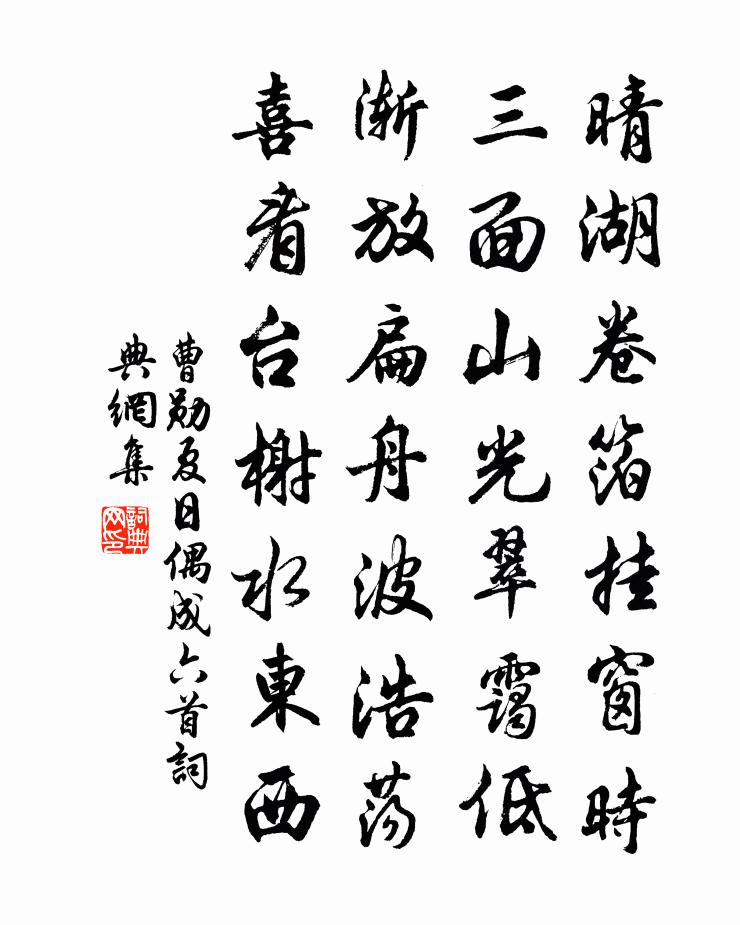 晴湖卷箔挂窗時
三面山光翠靄低
漸放扁舟波浩荡
喜看台榭水東西
曹勛夏日偶成六首詞
典網集
詞典
网印